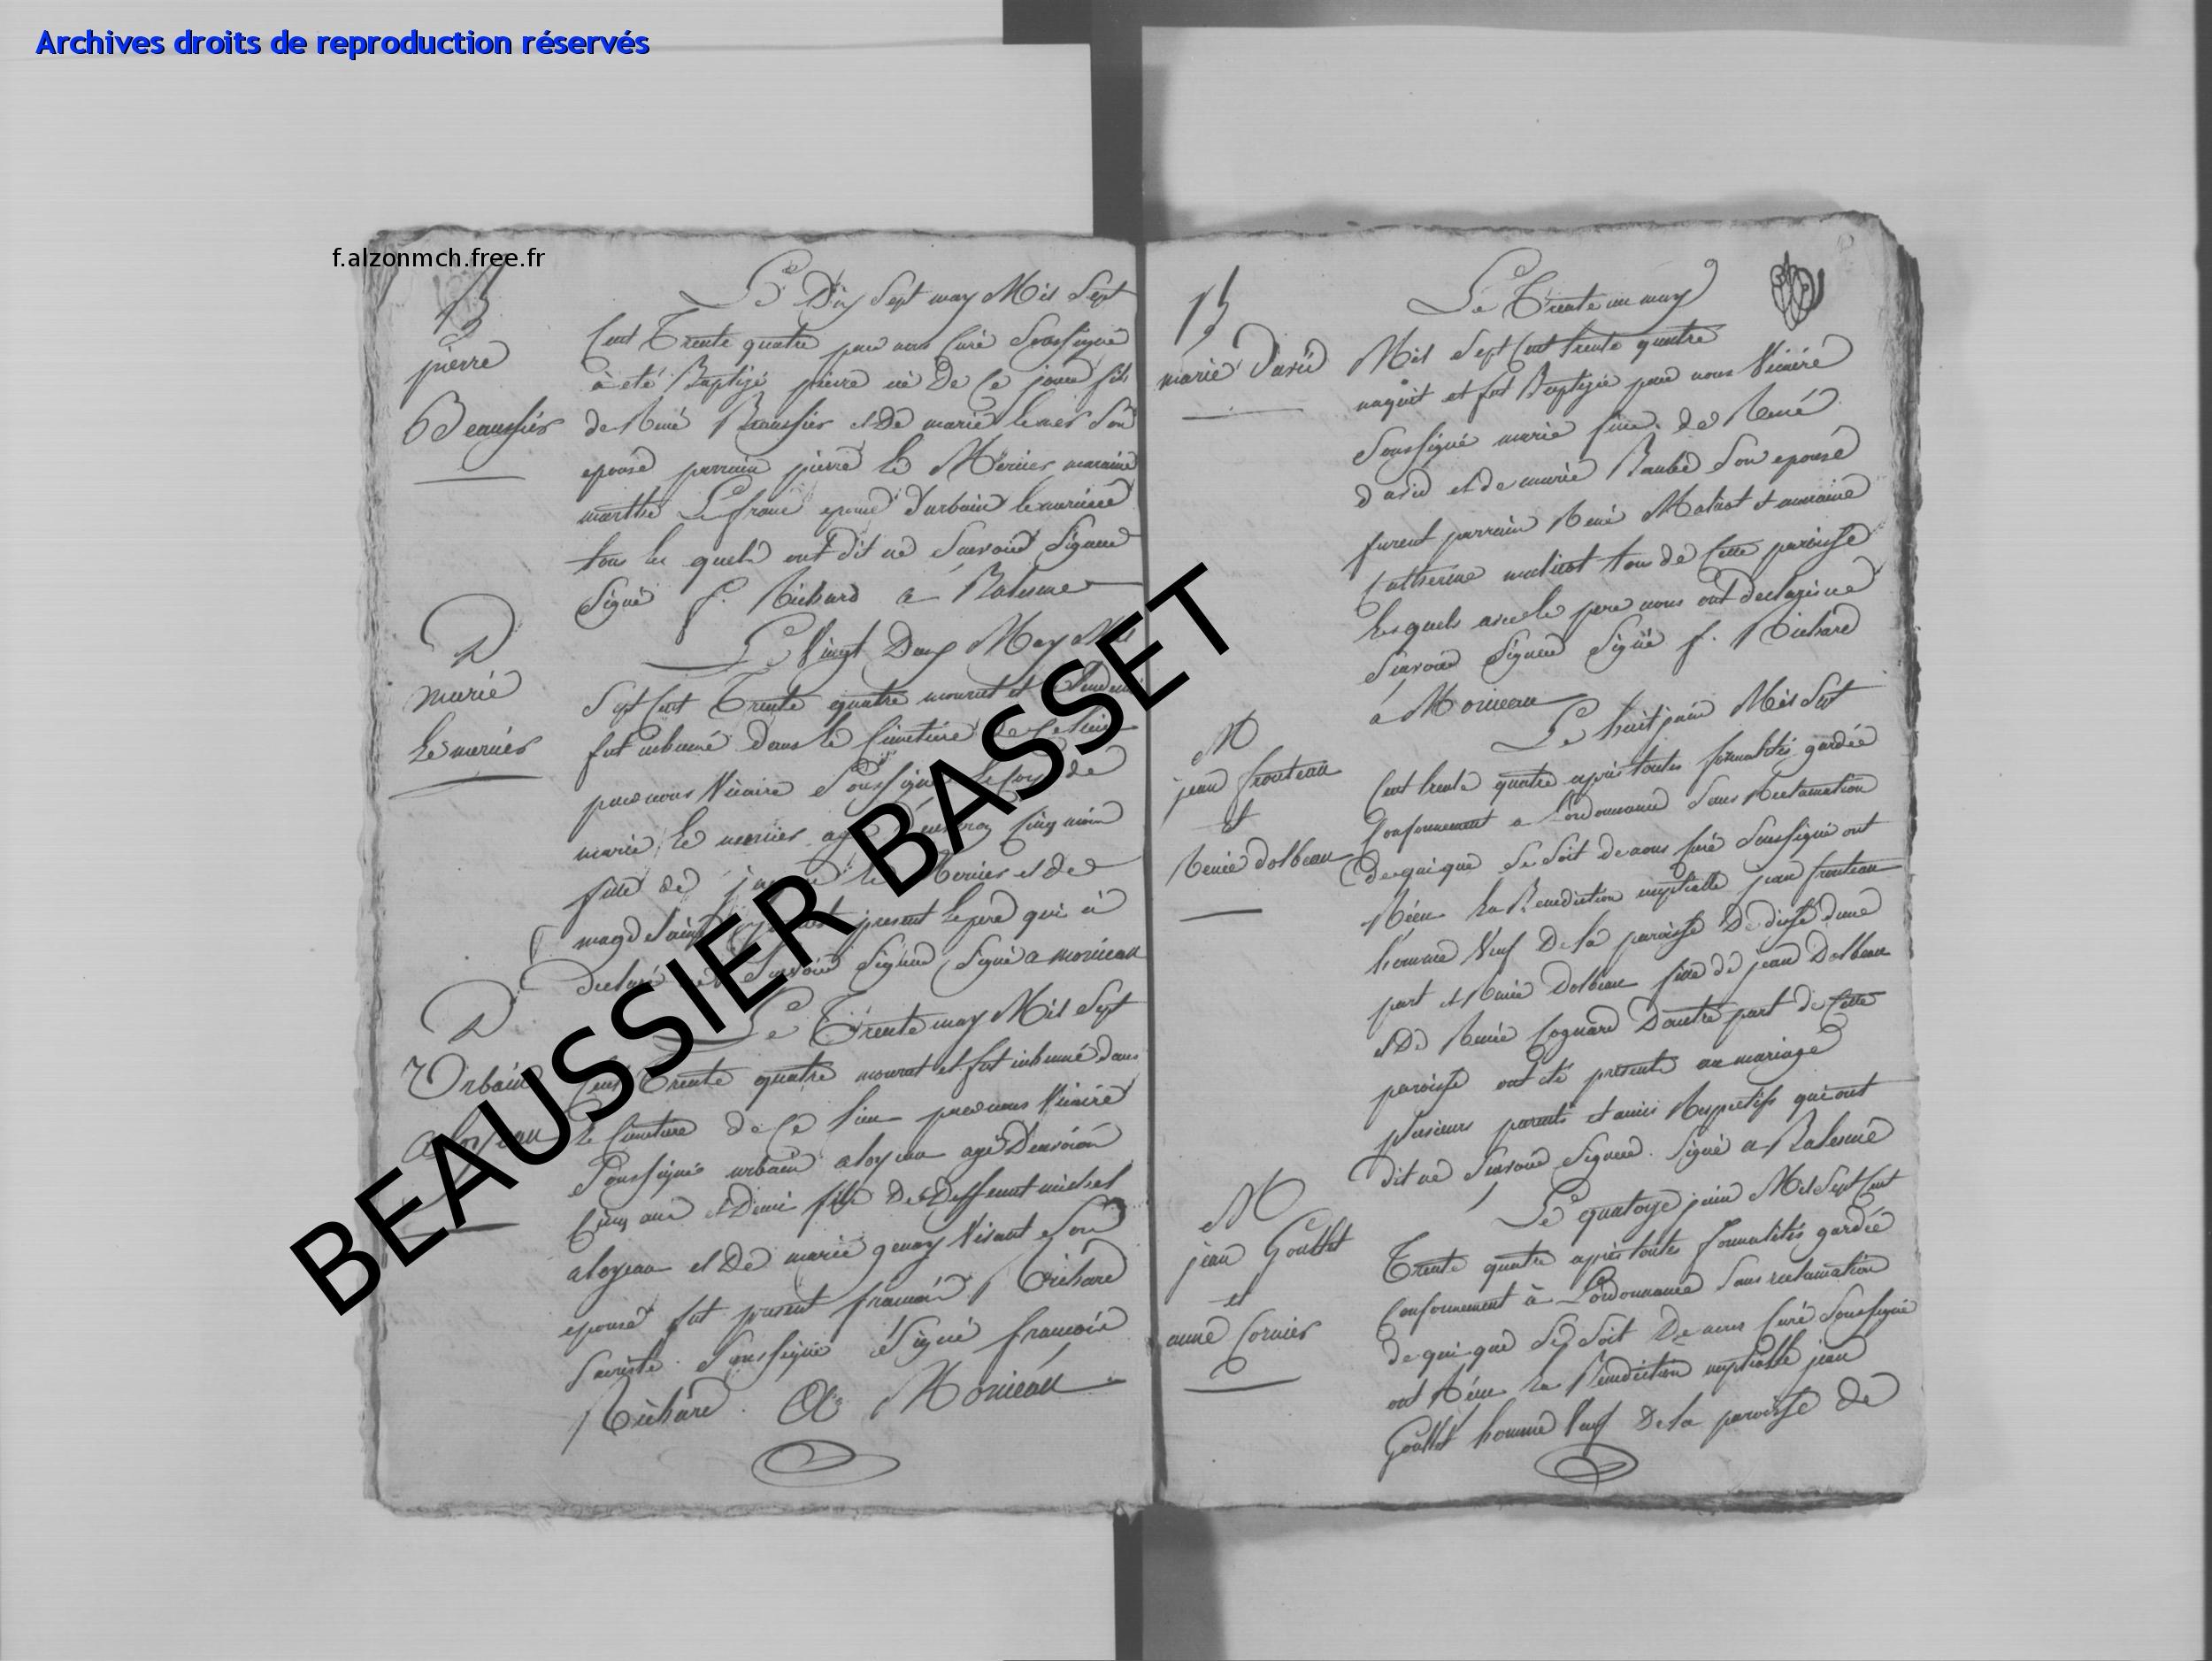 Archives droits de reproduction réservés
f.alzonmch.free.fr
BEAUSSIER BASSET
B
pierre
Beaussier
Le Dix Sept may Mil Sept
Cent Trente quatre par nous Curé Soussigné
à été Baptizé pierre né De Ce jour fils
de René Beaussier et De marie lemer Son
epouse parrain pierre le Mercier maraine
marthe Lefranc epouse d'urbain lemercier
tous les quels ont dit ne Scavoir Signer
Signé f. Richard a Balesme
D
marie
Lemercier
Le Vingt Deux May Mil
Sept Cent Trente quatre mourut et
fut inhumé dans le Cimetiere de Ce lieu
par nous Vicaire Soussigné le Corps de
marie le mercier agé D'environ Cinq mois
fille de le Mercier et de
present le pere qui a
declaré ne Scavoir Signer Signé a moriceau
D
Urbain
aloyeau
Le Trente may Mil Sept
Cent Trente quatre mourut et fut inhumé dans
le Cimetiere de Ce lieu par nous Vicaire
Soussigné urbain aloyeau agé D'environ
Cinq ans et Demi fils De Deffunt michel
aloyeau et De marie genay Vivant Son
epouse fut present francois Richard
Sacriste Soussigné Signé francois
Richard a Moriceau
B
marie david
Le Trente un may
Mil Sept Cent trente quatre
naquit et fut Baptizée par nous Vicaire
Soussigné marie fille de René
david et de marie Baubé Son epouse
furent parrain René Maliot et maraine
Catherine maliot tous de Cette paroisse
lesquels avec le pere nous ont declaré ne
Scavoir Signer Signé f. Richard
a Moriceau
M
jean fronteau
et
Renée dolbeau
Le huit juin Mil Sept
Cent trente quatre après toutes formalités gardée
Conformement a L'ordonnance Sans Reclamation
de qui que Se Soit de nous Curé Soussigné ont
Réçu La Benediction nuptialle jean fronteau
homme Veuf De la paroisse De d'une
part et Renée Dolbeau fille de jean Dolbeau
et De Renée Cognard D'autre part de Cette
paroisse ont été présents au mariage
plusieurs parents et amis Respectifs qui ont
dit ne Scavoir Signer Signé a Balesme
M
jean Goullet
et
anne Cormier
Le quatorze juin Mil Sept Cent
Trente quatre après toutes formalités gardée
Conformement à L'ordonnance Sans reclamation
de qui que Se Soit De nous Curé Soussigné
ont Réçu La Benediction nuptialle jean
Goullet homme Veuf De la paroisse de